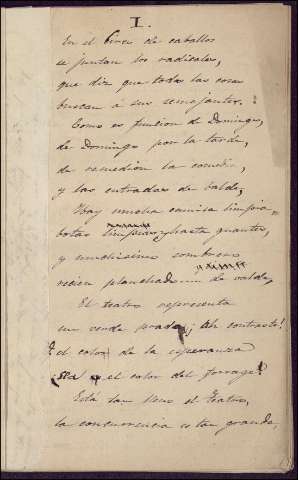 I.
En el Circo de caballos
se juntan los radicales,
que diz que todas las cosas
buscan á sus semejantes.
Como es funcion de Domingo,
de Domingo por la tarde,
de comedion la comedia,
y las entradas de balde,
Hay mucha camisa limpia
botas y hasta guantes,
y muchísimos sombreros
recien planchados de balde,
El teatro representa
un verde prado; ¡ah contraste!
el color de la esperanza
el color del forrage!
Está tan lleno el Teatro,
la concurrencia es tan grande,